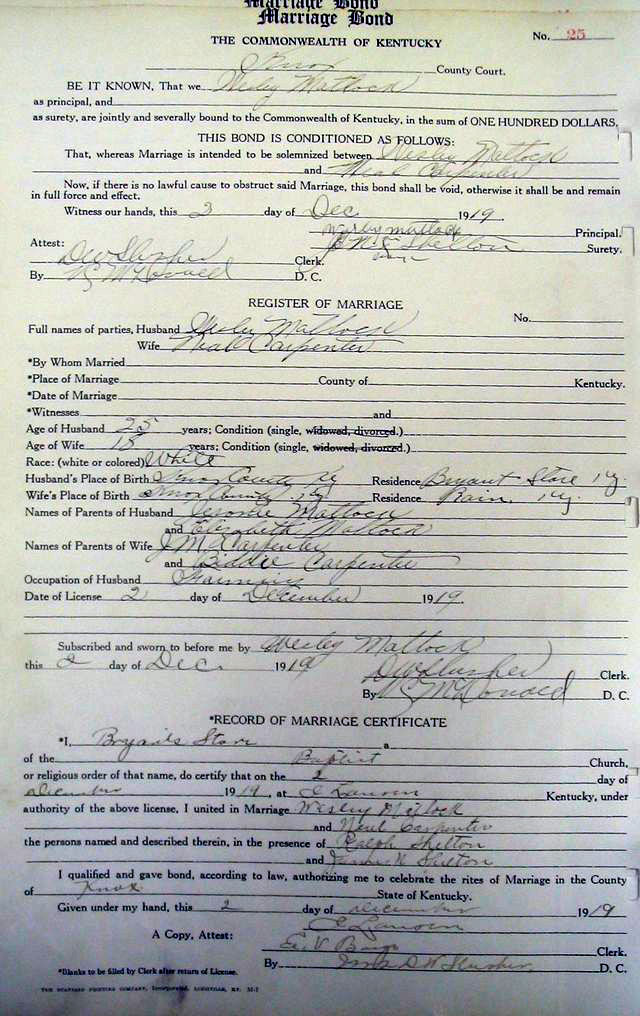 Marriage Bond
Marriage Bond
No. 25
THE COMMONWEALTH OF KENTUCKY
Knox County Court.
BE IT KNOWN, That we Wesley Matlock
as principal, and
as surety, are jointly and severally bound to the Commonwealth of Kentucky, in the sum of ONE HUNDRED DOLLARS,
THIS BOND IS CONDITIONED AS FOLLOWS:
That, whereas Marriage is intended to be solemnized between Wesley Matlock
and Neal Carpenter
Now, if there is no lawful cause to obstruct said Marriage, this bond shall be void, otherwise it shall be and remain
in full force and effect.
Witness our hands, this 2 day of Dec 1919.
Wesley Matlock Principal.
Attest: Shelton Surety.
D W Slusher Clerk.
By McDonald D. C.
REGISTER OF MARRIAGE
No.
Full names of parties, Husband Wesley Matlock
Wife Neal Carpenter
*By Whom Married
*Place of Marriage County of Kentucky.
*Date of Marriage
*Witnesses and
Age of Husband 25 years; Condition (single, widowed, divorced.)
Age of Wife 18 years; Condition (single, widowed, divorced.)
Race: (white or colored) White
Husband's Place of Birth Knox County Ky Residence Bryant Store Ky.
Wife's Place of Birth Knox County, Ky Residence Rain, Ky.
Names of Parents of Husband Jerome Matlock
and Elizabeth Matlock
Names of Parents of Wife J M Carpenter
and Biddie Carpenter
Occupation of Husband Farming
Date of License 2 day of December 1919.
Subscribed and sworn to before me by Wesley Matlock
this 2 day of Dec. 1919
D W Slusher Clerk.
By McDonald D. C.
*RECORD OF MARRIAGE CERTIFICATE
*I, Bryants Store a
of the Baptist Church,
or religious order of that name, do certify that on the 2 day of
december 1919, at Kentucky, under
authority of the above license, I united in Marriage Wesley Matlock
and Neal Carpenter
the persons named and described therein, in the presence of Ralph Shelton
and Shelton
I qualified and gave bond, according to law, authorizing me to celebrate the rites of Marriage in the County
of Knox State of Kentucky.
Given under my hand, this 2 day of december 1919
A Copy, Attest:
Clerk.
By D W Slusher D. C.
*Blanks to be filled by Clerk after return of License.
THE STANDARD PRINTING COMPANY, Incorporated, LOUISVILLE, KY.